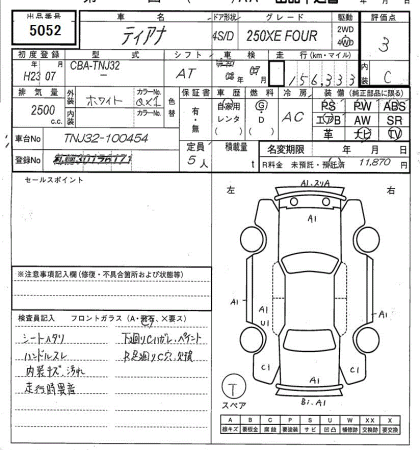 出品番号 車名 ドア形状 グレード 駆動 評価点
5052 ティアナ 4S/D 250XE FOUR 2WD 4WD 3
初度登録 型式 シフト 車検 走行(km・マイル) 内装
H23 07 CBA-TNJ32 AT 156,333 C
排気量 外装 カラーNo. 色替 保証書 車歴 燃料 冷房 装備(純正部品に限る)
2500 c.c. ホワイト QX1 有・無 自家用 レンタ G D AC PS PW ABS
内装 カラーNo. エアB AW SR
車台No TNJ32-100454 革 ナビ TV
登録No 定員 5人 積載量 t 名変期限 年 月 日
R料金 未預託・預託済 11,870 円
セールスポイント
左 右
A1.スリA
A1
A1
A1 A1
U1
C1 C1
A1
B1.A1
T
スペア
※注意事項記入欄(修復・不具合箇所および状態等)
検査員記入 フロントガラス(A・飛石、×要ス)
シートヘタリ 下廻りCハガレ、ペイント
ハンドルスレ R足廻りC穴、
内装キズ、汚れ
走行時異音
A B C P S U W X XX
線キズ 要板金 腐食 要塗装 サビ 凹凸 補修跡 要交換